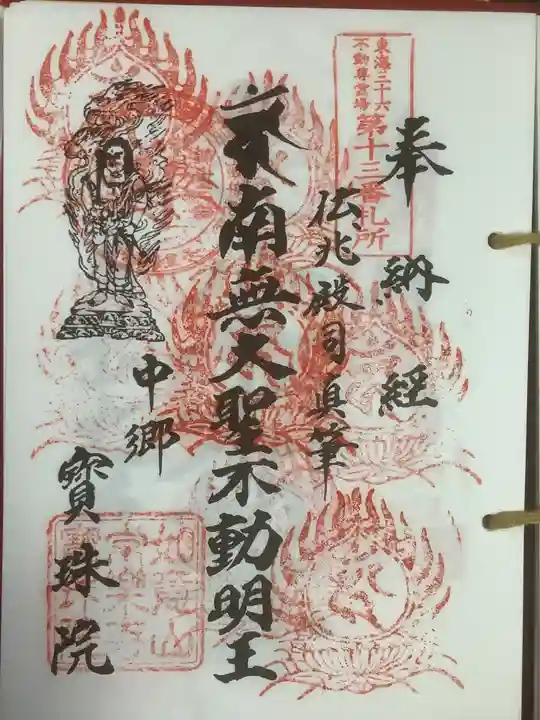 東海三十六
不動尊霊場
第十三番札所
奉納経
兆殿司真筆
南無大聖不動明王
中郷
寶珠院